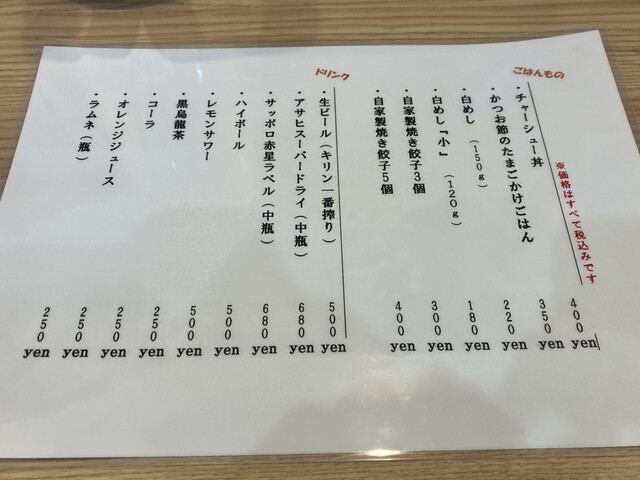 ごはんもの
※価格はすべて税込みです
・チャーシュー丼 400yen
・かつお節のたまごかけごはん 350yen
・白めし (150g) 220yen
・白めし『小』 (120g) 180yen
・自家製焼き餃子3個 300yen
・自家製焼き餃子5個 400yen
ドリンク
・生ビール(キリン一番搾り) 500yen
・アサヒスーパードライ(中瓶) 680yen
・サッポロ赤星ラベル(中瓶) 680yen
・ハイボール 500yen
・レモンサワー 500yen
・黒烏龍茶 250yen
・コーラ 250yen
・オレンジジュース 250yen
・ラムネ(瓶) 250yen